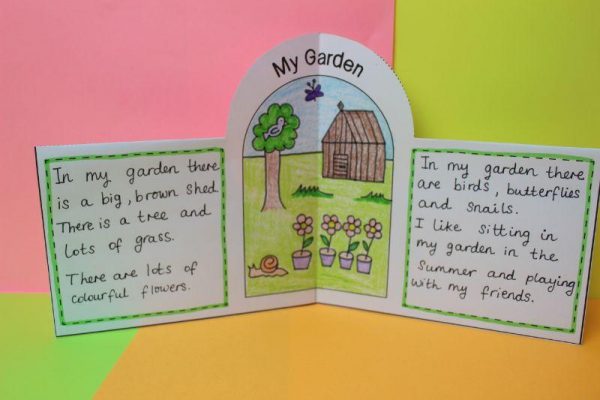 My Garden
In my garden there
is a big, brown shed
There is a tree and
lots of grass.
There are lots of
colourful flowers.
In my garden there
are birds, butterflies
and snails.
I like sitting in
my garden in the
Summer and playing
with my friends.